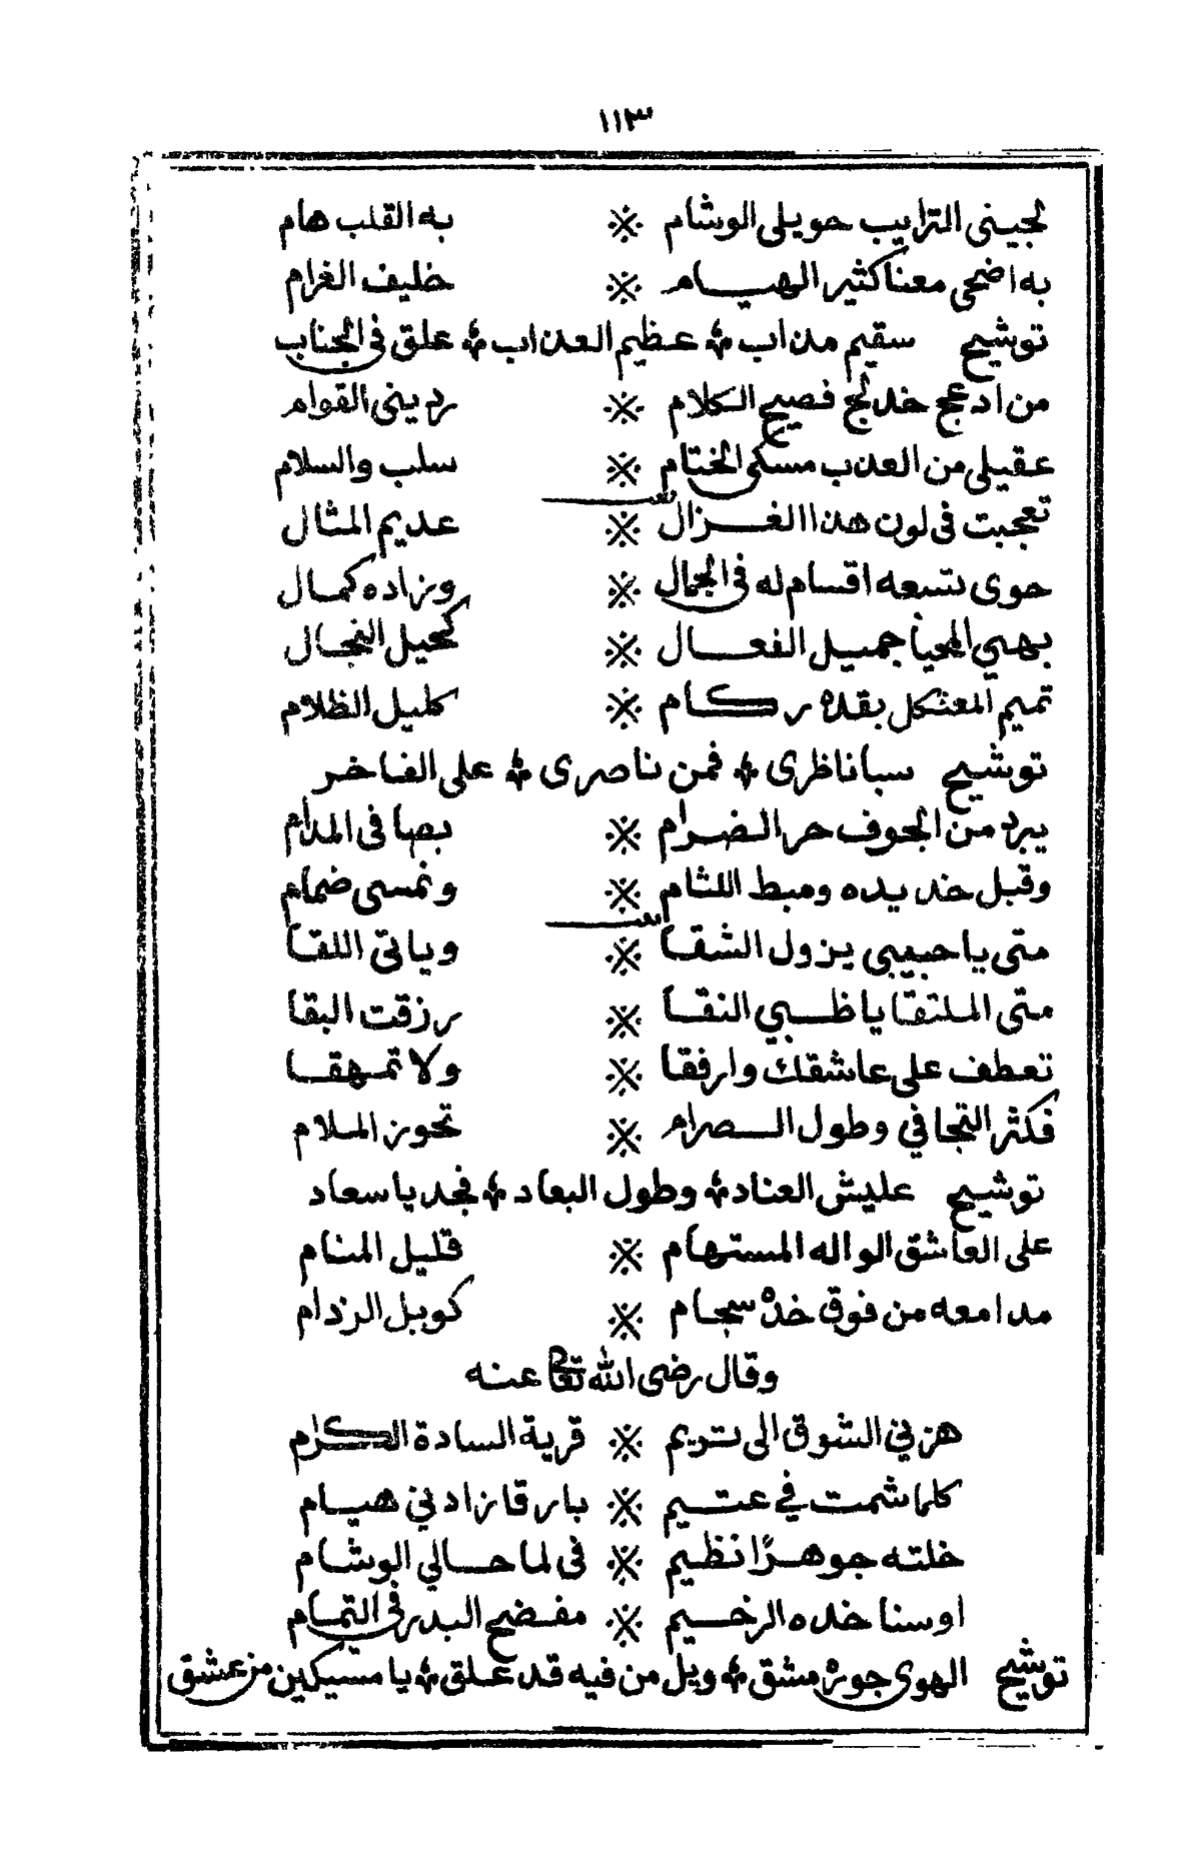 ١١٣
لجيني الترايب حويلى الوشام ※ به القلب هام
به اضحى معنا كثير الهيام ※ خليف الغرام
توشيح سقيم مذاب ؞ عظيم العذاب ؞ علق فى الجناب
من ادعج خدلج فصيح الكلام ※ رديني القوام
عقيلى من العذب مسكى الختام ※ سلب والسلام
تعجبت فى لون هذا الغزال ※ عديم المثال
حوى تسعه اقسام له فى الجمال ※ وزاده كمال
بهي المحيا جميل الفعال ※ كحيل النجال
تميم المعثكل بقده ركام ※ كليل الظلام
توشيح سبا ناظرى ؞ فمن ناصرى ؞ على الفاخر
يبرد من الجوف حر الضرام ※ بصافى المدام
وقبل خديده ومبط اللثام ※ ونمسى ضمام
متى يا حبيبى يزول الشقا ※ وياتى اللقا
متى الملتقا يا ظبي النقا ※ رزقت البقا
تعطف على عاشقك وارفقا ※ ولا تمهقا
فكثر التجافي وطول الصرام ※ تحوز الملام
توشيح عليش العناد ؞ وطول البعاد ؞ فجد يا سعاد
على العاشق الواله المستهام ※ قليل المنام
مدامعه من فوق خده سجام ※ كوبل الرذام
وقال رضى الله تعالى عنه
هزني الشوق الى تريم ※ قرية السادة الكرام
كلما شمت في عتيم ※ بارقا زادني هيام
خلته جوهرًا نظيم ※ فى لما حالي الوشام
اوسنا خده الرخيم ※ مفضح البدر فى التمام
توشيح الهوى جوره مشق ؞ ويل من فيه قد علق ؞ يا مسيكين من عشق